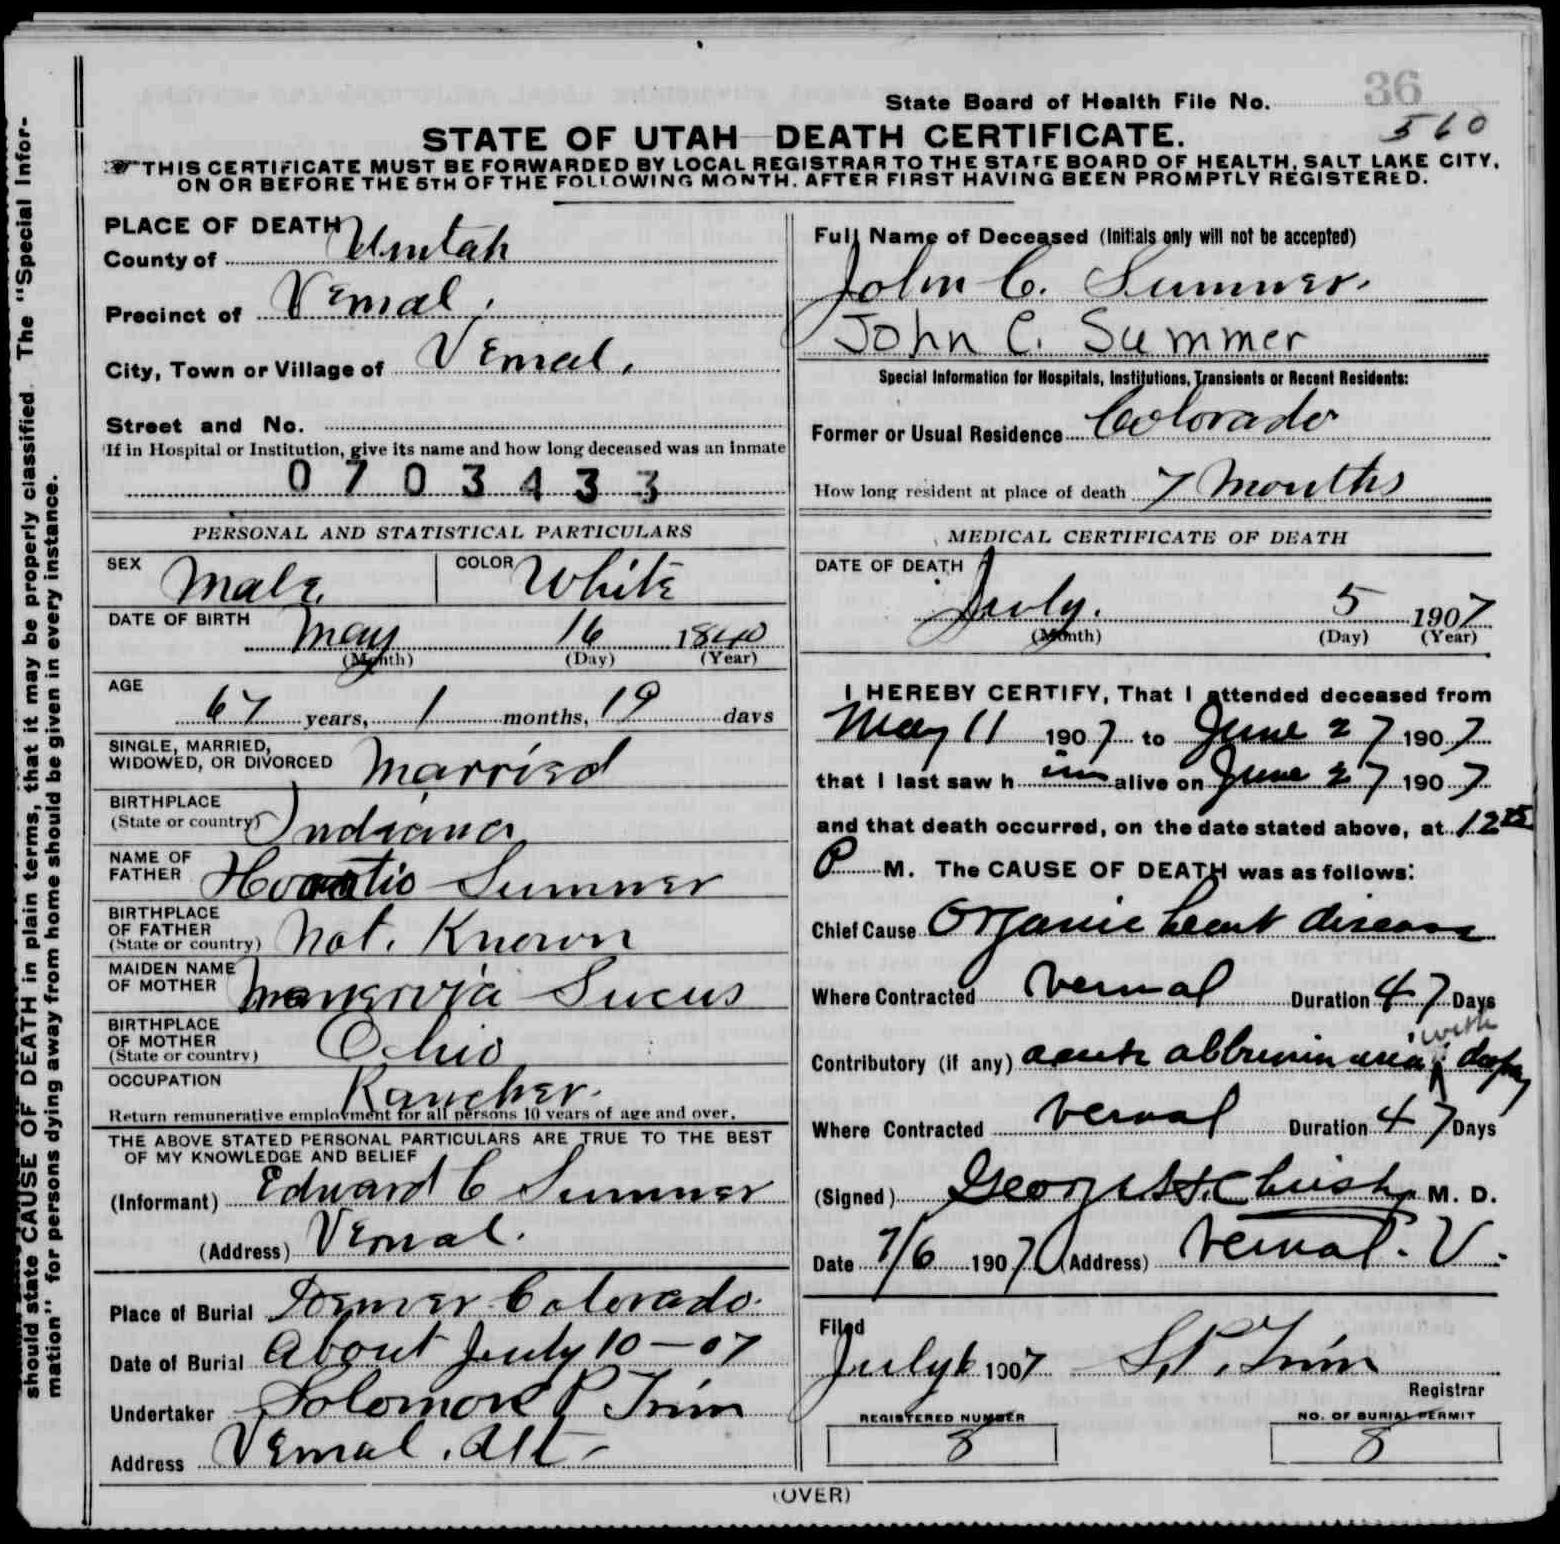 36
State Board of Health File No. 560
STATE OF UTAH—DEATH CERTIFICATE.
THIS CERTIFICATE MUST BE FORWARDED BY LOCAL REGISTRAR TO THE STATE BOARD OF HEALTH, SALT LAKE CITY,
ON OR BEFORE THE 5TH OF THE FOLLOWING MONTH. AFTER FIRST HAVING BEEN PROMPTLY REGISTERED.
should state CAUSE OF DEATH in plain terms, that it may be properly classified. The "Special Infor-
mation" for persons dying away from home should be given in every instance.
PLACE OF DEATH
County of Uintah
Precinct of Vernal.
City, Town or Village of Vernal.
Street and No.
If in Hospital or Institution, give its name and how long deceased was an inmate
0703433
PERSONAL AND STATISTICAL PARTICULARS
SEX Male. COLOR White
DATE OF BIRTH May 16 1840
(Month) (Day) (Year)
AGE
67 years, 1 months, 19 days
SINGLE, MARRIED,
WIDOWED, OR DIVORCED Married
BIRTHPLACE
(State or country) Indiana
NAME OF
FATHER Horatio Sumner
BIRTHPLACE
OF FATHER
(State or country) Not. Known
MAIDEN NAME
OF MOTHER
BIRTHPLACE
OF MOTHER
(State or country) Ohio
OCCUPATION Rancher.
Return remunerative employment for all persons 10 years of age and over.
THE ABOVE STATED PERSONAL PARTICULARS ARE TRUE TO THE BEST
OF MY KNOWLEDGE AND BELIEF
(Informant) Edward C Sumner
(Address) Vernal.
Place of Burial Denver Colorado.
Date of Burial About July 10—07
Undertaker Solomon P Trim
Address Vernal. Ut-
Full Name of Deceased (Initials only will not be accepted)
John C. Sumner.
John C. Summer
Special Information for Hospitals, Institutions, Transients or Recent Residents:
Former or Usual Residence Colorado
How long resident at place of death 7 Months
MEDICAL CERTIFICATE OF DEATH
DATE OF DEATH
July. 5 1907
(Month) (Day) (Year)
I HEREBY CERTIFY, That I attended deceased from
May 11 1907 to June 27 1907
that I last saw him alive on June 27 1907
and that death occurred, on the date stated above, at 12 15
P M. The CAUSE OF DEATH was as follows:
Chief Cause Organic heart disease
Where Contracted Vernal Duration 47 Days
with
Contributory (if any) acute albuminuria dropsy
Where Contracted Vernal Duration 47 Days
(Signed) George H. Christy M. D.
Date 7/6 1907 (Address) Vernal. U.
Filed
July 6 1907 S. P. Trim
Registrar
REGISTERED NUMBER
8
NO. OF BURIAL PERMIT
8
(OVER)